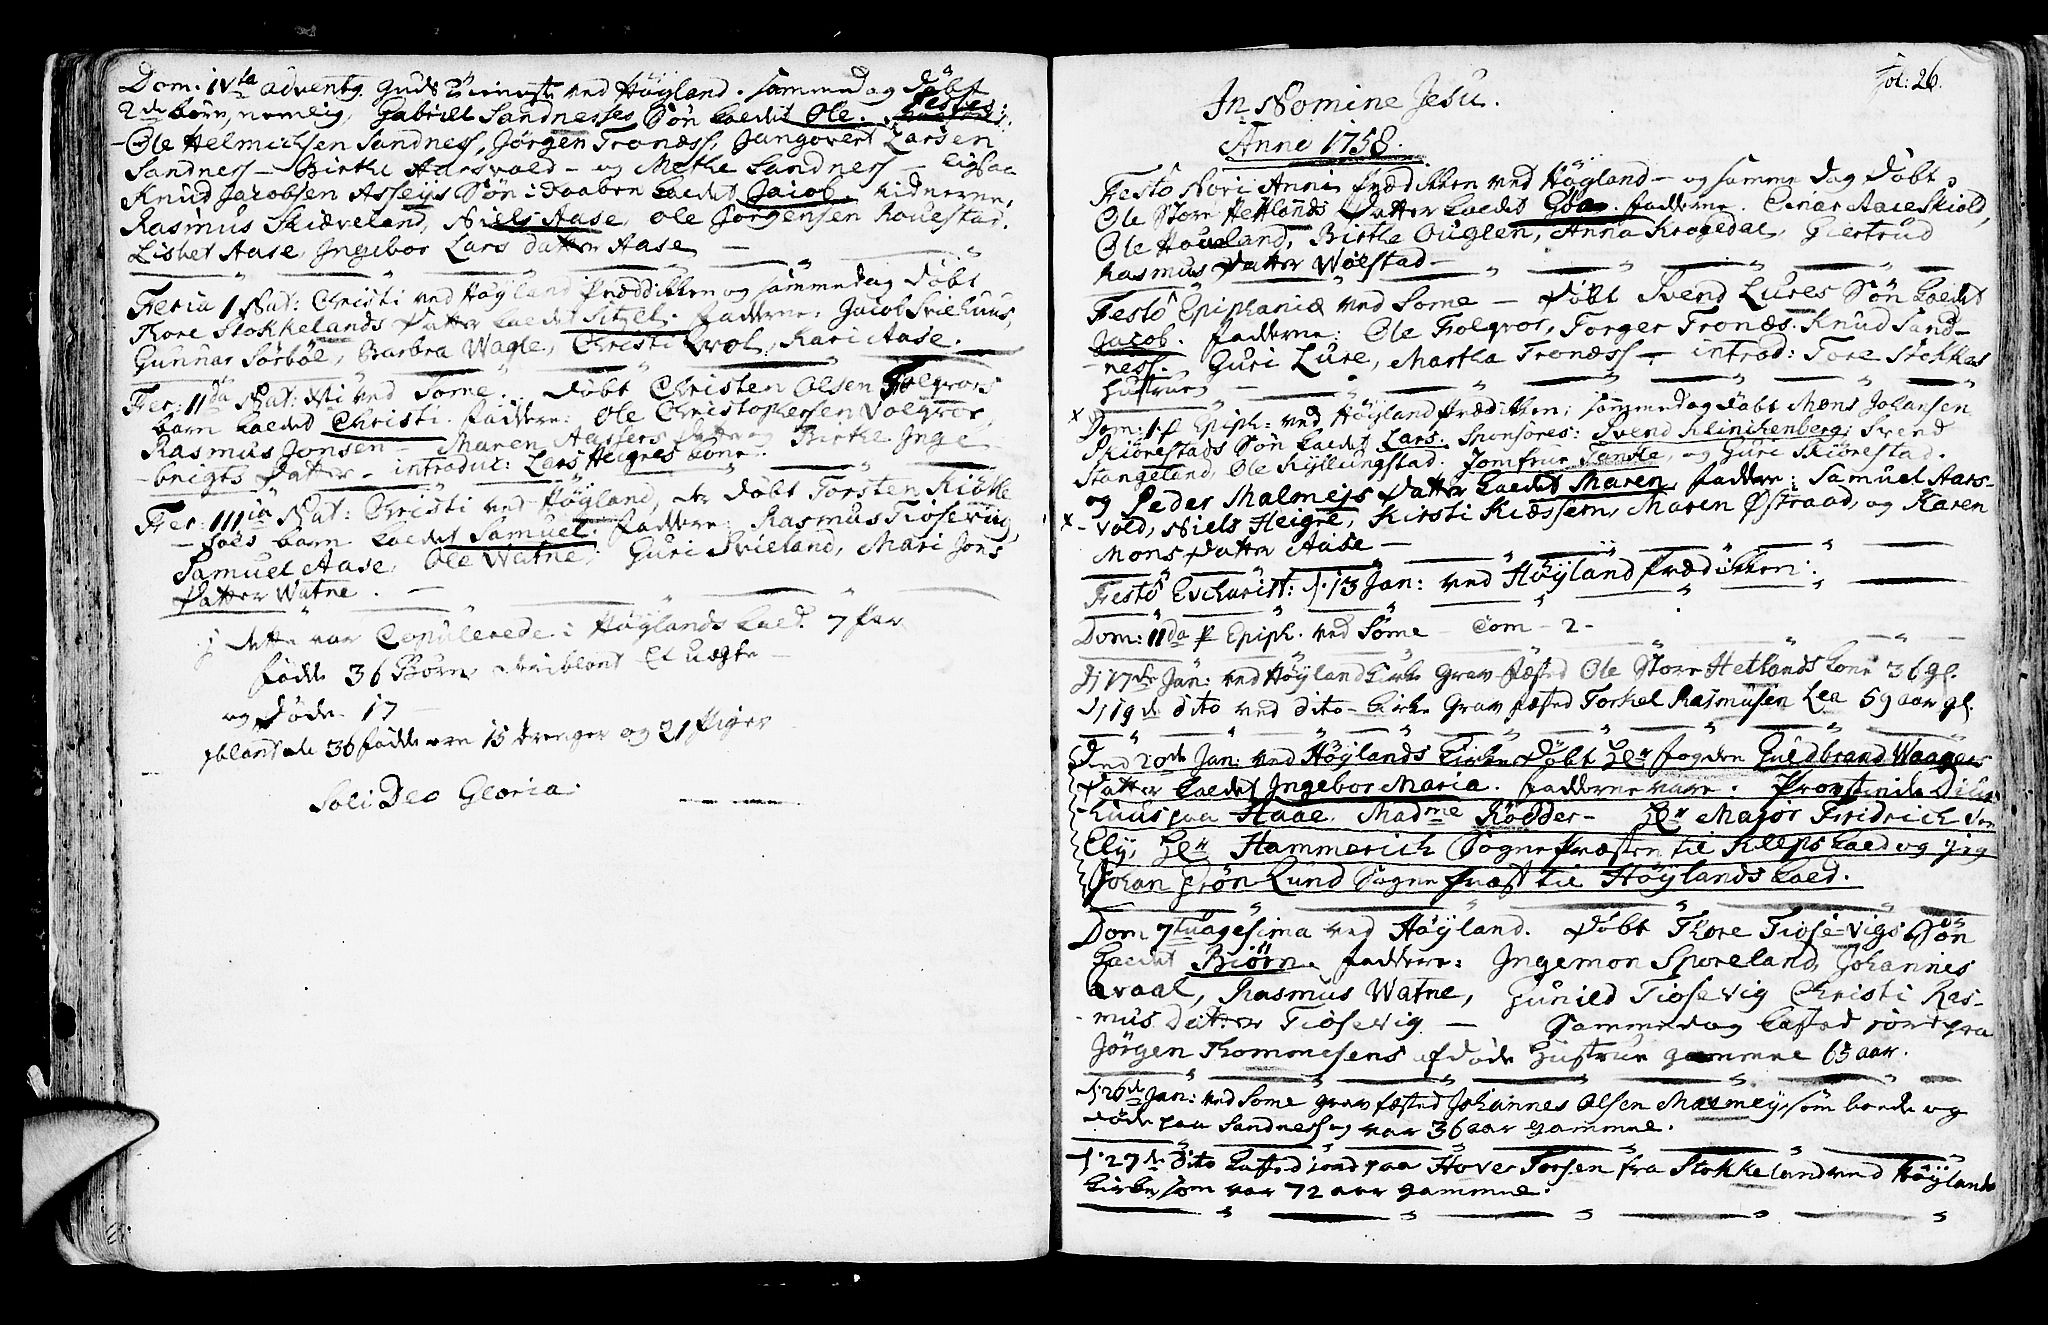 Dom: IVta advents Guds tieniste ved Höyland. sammedag döbt
2de börn, nemlig, Gabriell Sandnesses Sön kaldet Ole. Testes:
Ole Helmichsen Sandness, Jörgen Tronæss, Jungovert Larsen
Sandness – Birthe Aarsvold – og Methe Sandness – ligsaa
Knud Jacobsen Asseÿs Sön i daaben kaldet Jacob. vidnerne,
Rasmus Skiæveland, Niels Aase, Ole Jörgensen Rovestad.
Lisbet Aase, Ingebor Lars datter Aase –
Feria 1 Nat: Christi ved Höyland Prædikken og sammedag döbt
Thore Stokkelands datter kaldet Sitzel. Fadderne: Jacob Sviehuus,
Gunnar Sörböe, Barbra Wagle, Christi Qvol, Kari Aase.
Fer: IIda Nat: Xti ved Some. döbt Christen Olsen Folgvors
barn kaldet Christi. Faddere: Ole Christophersen Volgvor,
Rasmus Jonsen – Maren Aasters datter og Birthe Inge
-brigts datter – introduc: Lars Heigres kone.
Fer: IIIia Nat: Christi ved Höyland, er döbt Torsten Kiökke
-föes barn kaldet Samuel. Faddere: Rasmus Tiosevig,
Samuel Aase, Ole Watne, Guri Svieland, Mari Jons
datter Watne. –
J dette aar Copulerede i Höylands kald. 7 Par
födde 36 Börn, deriblant et uægte –
og döde 17 –
iblant de 36 födde ere 15 drenger og 21 Piger
Soli Deo Gloria.
Fol: 26.
In Nomine Jesu.
Anno 1758.
Festo Novi Anni Prædikken ved Höyland – og samme dag döbt
Ole Store Hetlands datter kaldet Göa. Fadderne. Einar Aareskiold,
Ole Hoveland, Birthe Ouglen, Anna Krogedal, Giertrud
Rasmus datter Wölstad –
Festo Epiphaniæ ved Some – döbt Svend Lures Sön kaldet
Jacob. Fadderne: Ole Folgvor, Torger Tronæs. Knud Sand-
-ness. Guri Lure, Martha Tronæss – introd: Tore Stokkas
hustrue –
x Dom: 1 p Epiph: ved Höyland Prædikken, sammedag döbt Mons Johansen
Skiörestads Sön kaldet Lars. Sponsores: Svend Klinckenberg, Svend
Stangeland, Ole Kyllingstad. Jomfrue Tandle, og Guri Skiörestad.
og Peder Malmeys datter kaldet Maren, Faddere: Samuel Aars-
x -vold, Niels Heigre, Kirsti Kiossern, Maren Østraad, og Karen
Mons datter Aase –
Festo Eucharist: d. 13 Jan: ved Höyland Prædikken.
Dom: IIda p Epiph. ved Some – Com – 2 –
d 17de Jan: ved Höyland kirke Grav fæsted Ole Store Hetlands kone 36 gl.
d 19de dito ved dito kirke Grav fæsted Torkel Rasmusen Lea 59 aar gl.
Den 20de Jan: ved Höylands kirke döbt Hr Fogden Guldbrand Waagers
datter kaldet Ingebor Maria. Fadderne vare. Provstinde
huus paa Haae. Madme Rödder – Hr Major Fridrich von
Ely, Hr Hammerich Sogne Præsten til Kleps kald og jeg
Johan Grön Lund Sogne Præst til Höylands kald.
Dom 7tuagesima ved Höyland. döbt Thore Tiose-vigs Sön
kaldet Biörn. Faddere: Ingemon Sporeland, Johannes
Qvaal, Rasmus Watne, Gunild Tiosevig Christi Ras-
-mus datter Tiosevig – Sammedag kasted jord paa
Jörgen Thommesens afdöde hustrue gammel 65 aar.
d. 26de Jan: ved Some grav fæsted Johannes Olsen Malmey, som boede og
döde paa Sandness og var 36 aar gammel.
d. 27de dito kasted jord paa Hover Torsen fra Stokkeland ved Höylands
kirke, som var 72 aar gammel.